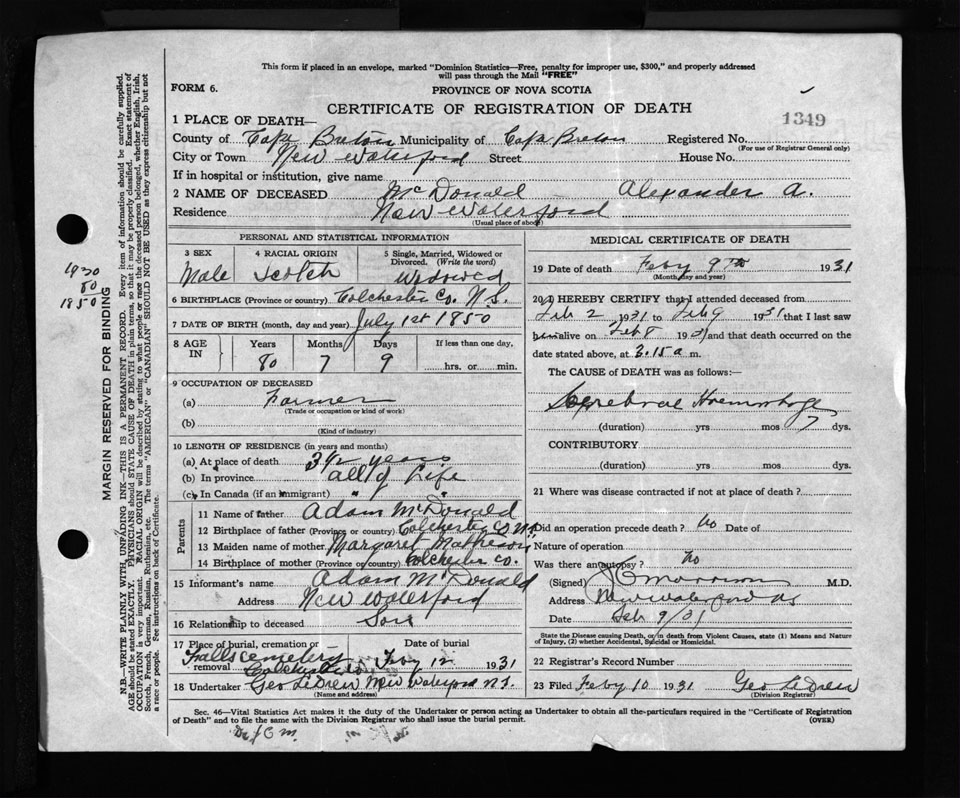 This form if placed in an envelope, marked "Dominion Statistics—Free, penalty for improper use, $300," and properly addressed
will pass through the Mail "FREE"
FORM 6.
PROVINCE OF NOVA SCOTIA
CERTIFICATE OF REGISTRATION OF DEATH
1349
1 PLACE OF DEATH—
County of Cape Breton Municipality of Cape Breton Registered No.
(For use of Registrar General only)
City or Town New Waterford Street House No.
If in hospital or institution, give name
2 NAME OF DECEASED McDonald Alexander A.
Residence New Waterford
(Usual place of abode)
PERSONAL AND STATISTICAL INFORMATION
3 SEX 4 RACIAL ORIGIN 5 Single, Married, Widowed or
Divorced. (Write the word)
Male Scotch Widowed
6 BIRTHPLACE (Province or country) Colchester Co. N.S.
7 DATE OF BIRTH (month, day and year) July 1st 1850
8 AGE IN Years Months Days If less than one day,
80 7 9 hrs. or min.
9 OCCUPATION OF DECEASED
(a) Farmer
(Trade or occupation or kind of work)
(b)
(Kind of industry)
10 LENGTH OF RESIDENCE (in years and months)
(a) At place of death 3 1/2 years
(b) In province all of Life
(c) In Canada (if an immigrant) " "
Parents
11 Name of father Adam McDonald
12 Birthplace of father (Province or country) Colchester Co N.S.
13 Maiden name of mother Margaret Matheson
14 Birthplace of mother (Province or country) Colchester Co.
15 Informant's name Adam McDonald
Address New Waterford
16 Relationship to deceased Son
17 Place of burial, cremation or removal Date of burial
Falls Cemetery Feby 12 1931
Colchester Co
18 Undertaker Geo LeDrew New Waterford N.S.
(Name and address)
MEDICAL CERTIFICATE OF DEATH
19 Date of death Feby 9th 1931
(Month, day and year)
20 I HEREBY CERTIFY that I attended deceased from
Feb 2 1931 to Feb 9 1931 that I last saw
him alive on Feb 8 1931 and that death occurred on the
date stated above, at 3.15 a m.
The CAUSE of DEATH was as follows:—
Cerebral Haemorrhage
(duration) yrs mos 7 dys.
CONTRIBUTORY
(duration) yrs mos dys.
21 Where was disease contracted if not at place of death?
Did an operation precede death? No Date of
Nature of operation
Was there an autopsy? No
(Signed) Morrison M.D.
Address New Waterford NS
Date Feb 9/31
State the Disease causing Death, or in death from Violent Causes, state (1) Means and Nature
of Injury, (2) whether Accidental, Suicidal or Homicidal.
22 Registrar's Record Number
23 Filed Feby 10 1931 Geo LeDrew
(Division Registrar)
Sec. 46—Vital Statistics Act makes it the duty of the Undertaker or person acting as Undertaker to obtain all the particulars required in the "Certificate of Registration
of Death" and to file the same with the Division Registrar who shall issue the burial permit.
(OVER)
1930
80
1850
MARGIN RESERVED FOR BINDING
N.B.—WRITE PLAINLY WITH UNFADING INK—THIS IS A PERMANENT RECORD. Every item of information should be carefully supplied.
AGE should be stated EXACTLY. PHYSICIANS should STATE CAUSE OF DEATH in plain terms so that it may be properly classified. Exact statement of
OCCUPATION is very important. RACIAL ORIGIN will be described by stating to what people or race the deceased person belonged, whether English, Irish,
Scotch, French, German, Russian, Ruthenian, etc. The terms "AMERICAN" or "CANADIAN" SHOULD NOT BE USED as they express citizenship but not
a race or people. See instructions on back of Certificate.